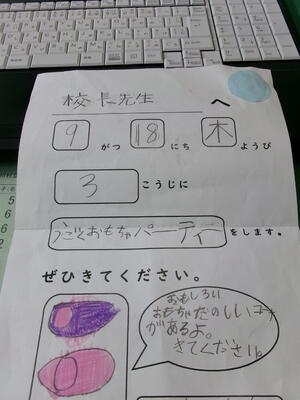 校長先生 へ
9 がつ 18 にち 木 ようび
3 こうじに
うごくおもちゃパーティー をします。
ぜひきてください。
おもしろい
おもちゃだのしいコーナ
があるよ。
きてください。